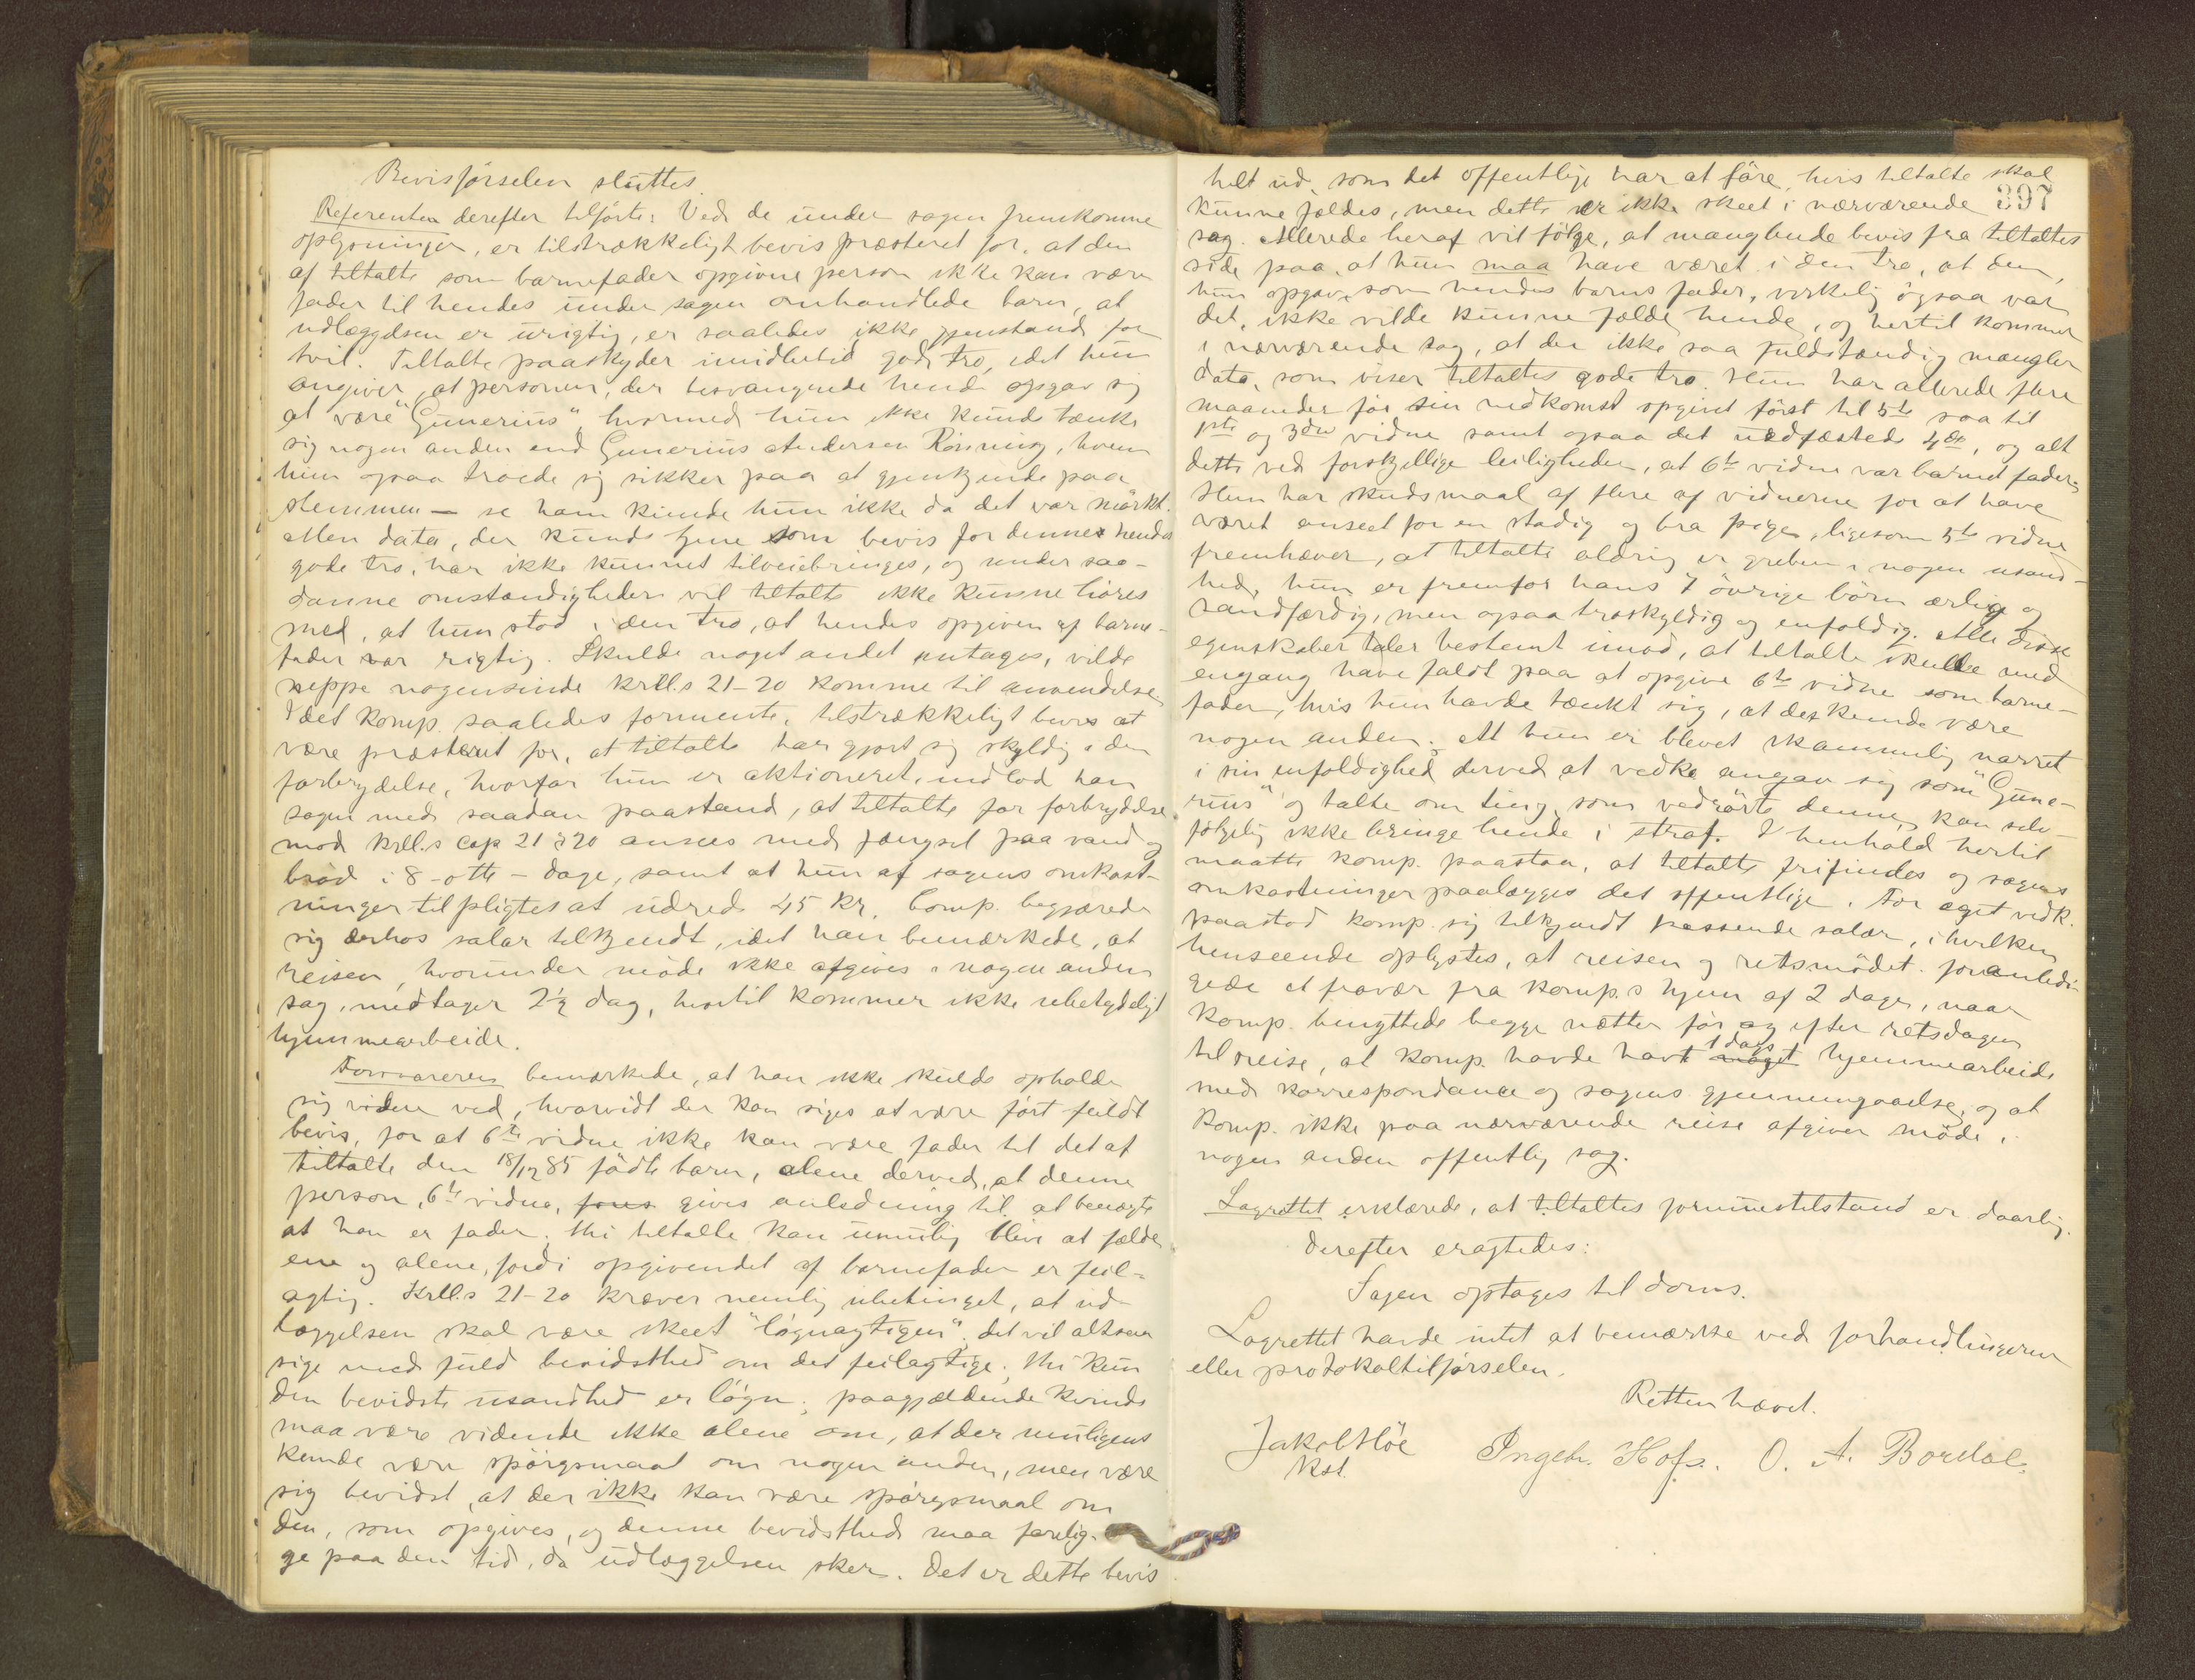 Bevisførselen sluttes.
Referenten derefter tilførte: Ved de under sagen fremkomne
oplysninger, er tilstrækkeligt bevis præsteret for, at den
af tiltalte som barnefader opgivne person ikke kan være
fader til hendes under sagen omhandlede barn, at
udlæggelsen er urigtig, er saaledes ikke gjenstand for
tvil. Tiltalte paaskyder imidlertid god tro, idet hun
angiver, at personen, der besvangrede hende opgav sig
at være "Gunerius", hvormed hun ikke kunde tænke
sig nogen anden end Gunerius Andersen Rønning, hvem
hun ogsaa troede sig sikker paa at gjenkjende paa
stemmen – se ham kunde hun ikke da det var mørkt.
Men data, der kunde tjene som bevis for dennes hendes
gode tro, har ikke kunnet tilveiebringes, og under saa-
danne omstændigheder vil tiltalte ikke kunne høres
med, at hun stod i den tro, at hendes opgiven af barne-
fader var rigtig. Skulde noget andet antages, vilde
neppe nogensinde krll.s 21-20 komme til anvendelse,
Idet komp. saaledes formente, tilstrækkeligt bevis at
være præsteret for, at tiltalte har gjort sig skyldig i den
forbrydelse, hvorfor hun er aktioneret, indlod han
sagen med saadan paastand, at tiltalte for forbrydelse
mod krll.s cap 21 § 20 ansees med fængsel paa vand og
brød i 8 - otte - dage, samt at hun af sagens omkost-
ninger tilpligtes at udrede 45 kr. Comp. begjærede
sig derhos salær tilkjendt, idet han bemærkede, at
reisen, hvorunder møde ikke afgives i nogen anden
sag, medtager 2½ dag, hertil kommer ikke ubetydeligt
hjemmearbeide.
Forsvareren bemærkede, at han ikke skulde opholde
sig videre ved, hvorvidt der kan siges at være ført fuldt
bevis, for at 6te vidne ikke kan være fader til det af
tiltalte den 18/12 85 fødte barn, alene derved, at denne
person, 6te vidne, gives anledning til at benægte
at han er fader, thi tiltalte kan umulig blive at fælde
ene og alene, fordi opgivendet af barnefader er feil-
agtig. Krll.s 21-20 kræver nemlig ubetinget, at ud-
læggelsen skal være skeet "løgnagtigen", det vil altsaa
sige med fuld bevidsthed om det feilagtige, thi kun
den bevidste usandhed er løgn; paagjældende kvinde
maa være vidende ikke alene om, at der muligens
kunde være spørgsmaal om nogen anden, men være
sig bevidst, at der ikke kan være spørgsmaal om
den, som opgives, og denne bevidsthed maa forelig-
ge paa den tid, da udlæggelsen sker. Det er dette bevis
397
helt ud, som det offentlige har at føre, hvis tiltalte skal
kunne fældes, men dette er ikke skeet i nærværende
sag. Allerede heraf vil følge, at manglende bevis fra tiltaltes
side paa, at hun maa have været i den tro, at den,
hun opgav, som hendes barns fader, virkelig ogsaa var
det, ikke vilde kunne fælde hende, og hertil kommer
i nærværende sag, at der ikke saa fuldstændig mangler
data, som viser tiltaltes gode tro. Hun har allerede flere
maaneder før sin nedkomst opgivet først til 5te saa til
1ste og 3die vidne samt ogsaa det uedfæstede 4de, og alt
dette ved forskjellige leiligheder, at 6te vidne var barnets fader.
Hun har skudsmaal af flere af vidnerne for at have
været anseet for en stadig og bra pige, ligesom 5te vidne
fremhæver, at tiltalte aldrig er greben i nogen usand-
hed, hun er fremfor hans 7 øvrige børn ærlig og
sandfærdig, men ogsaa troskyldig og enfoldig. Alle disse
egenskaber taler bestemt imod, at tiltalte skulde med
engang have faldt paa at opgive 6te vidne som barne-
fader, hvis hun havde tænkt sig, at det kunde være
nogen anden. At hun er blevet skammelig narret
i sin enfoldighed derved at vedk. angav sig som "Gune-
rius" og talte om ting, som vedrørte denne, kan selv-
følgelig ikke bringe hende i straf. I henhold hertil
maatte komp. paastaa, at tiltalte frifindes og sagens
omkostninger paalægges det offentlige. For eget vedk.
paastod komp. sig tilkjendt passende salær, i hvilken
henseende oplystes, at reisen og retsmødet foranledi-
gede et fravær fra komp.s hjem af 2 dage, naar
komp. benyttede begge nætter før og efter retsdagen
til reise, at komp. havde havt 1 dags hjemmearbeide
med korrespondance og sagens gjennemgaaelse, og at
komp. ikke paa nærværende reise afgiver møde i
nogen anden offentlig sag.
Lagrettet erklærede, at tiltaltes formuestilstand er daarlig.
Derefter eragtedes:
Sagen optages til doms.
Lagrettet havde intet at bemærke ved forhandlingerne
eller protokoltilførselen.
Retten hævet.
Jakob Høe Ingebr. Hofs. O. A. Bordal.
Kst.